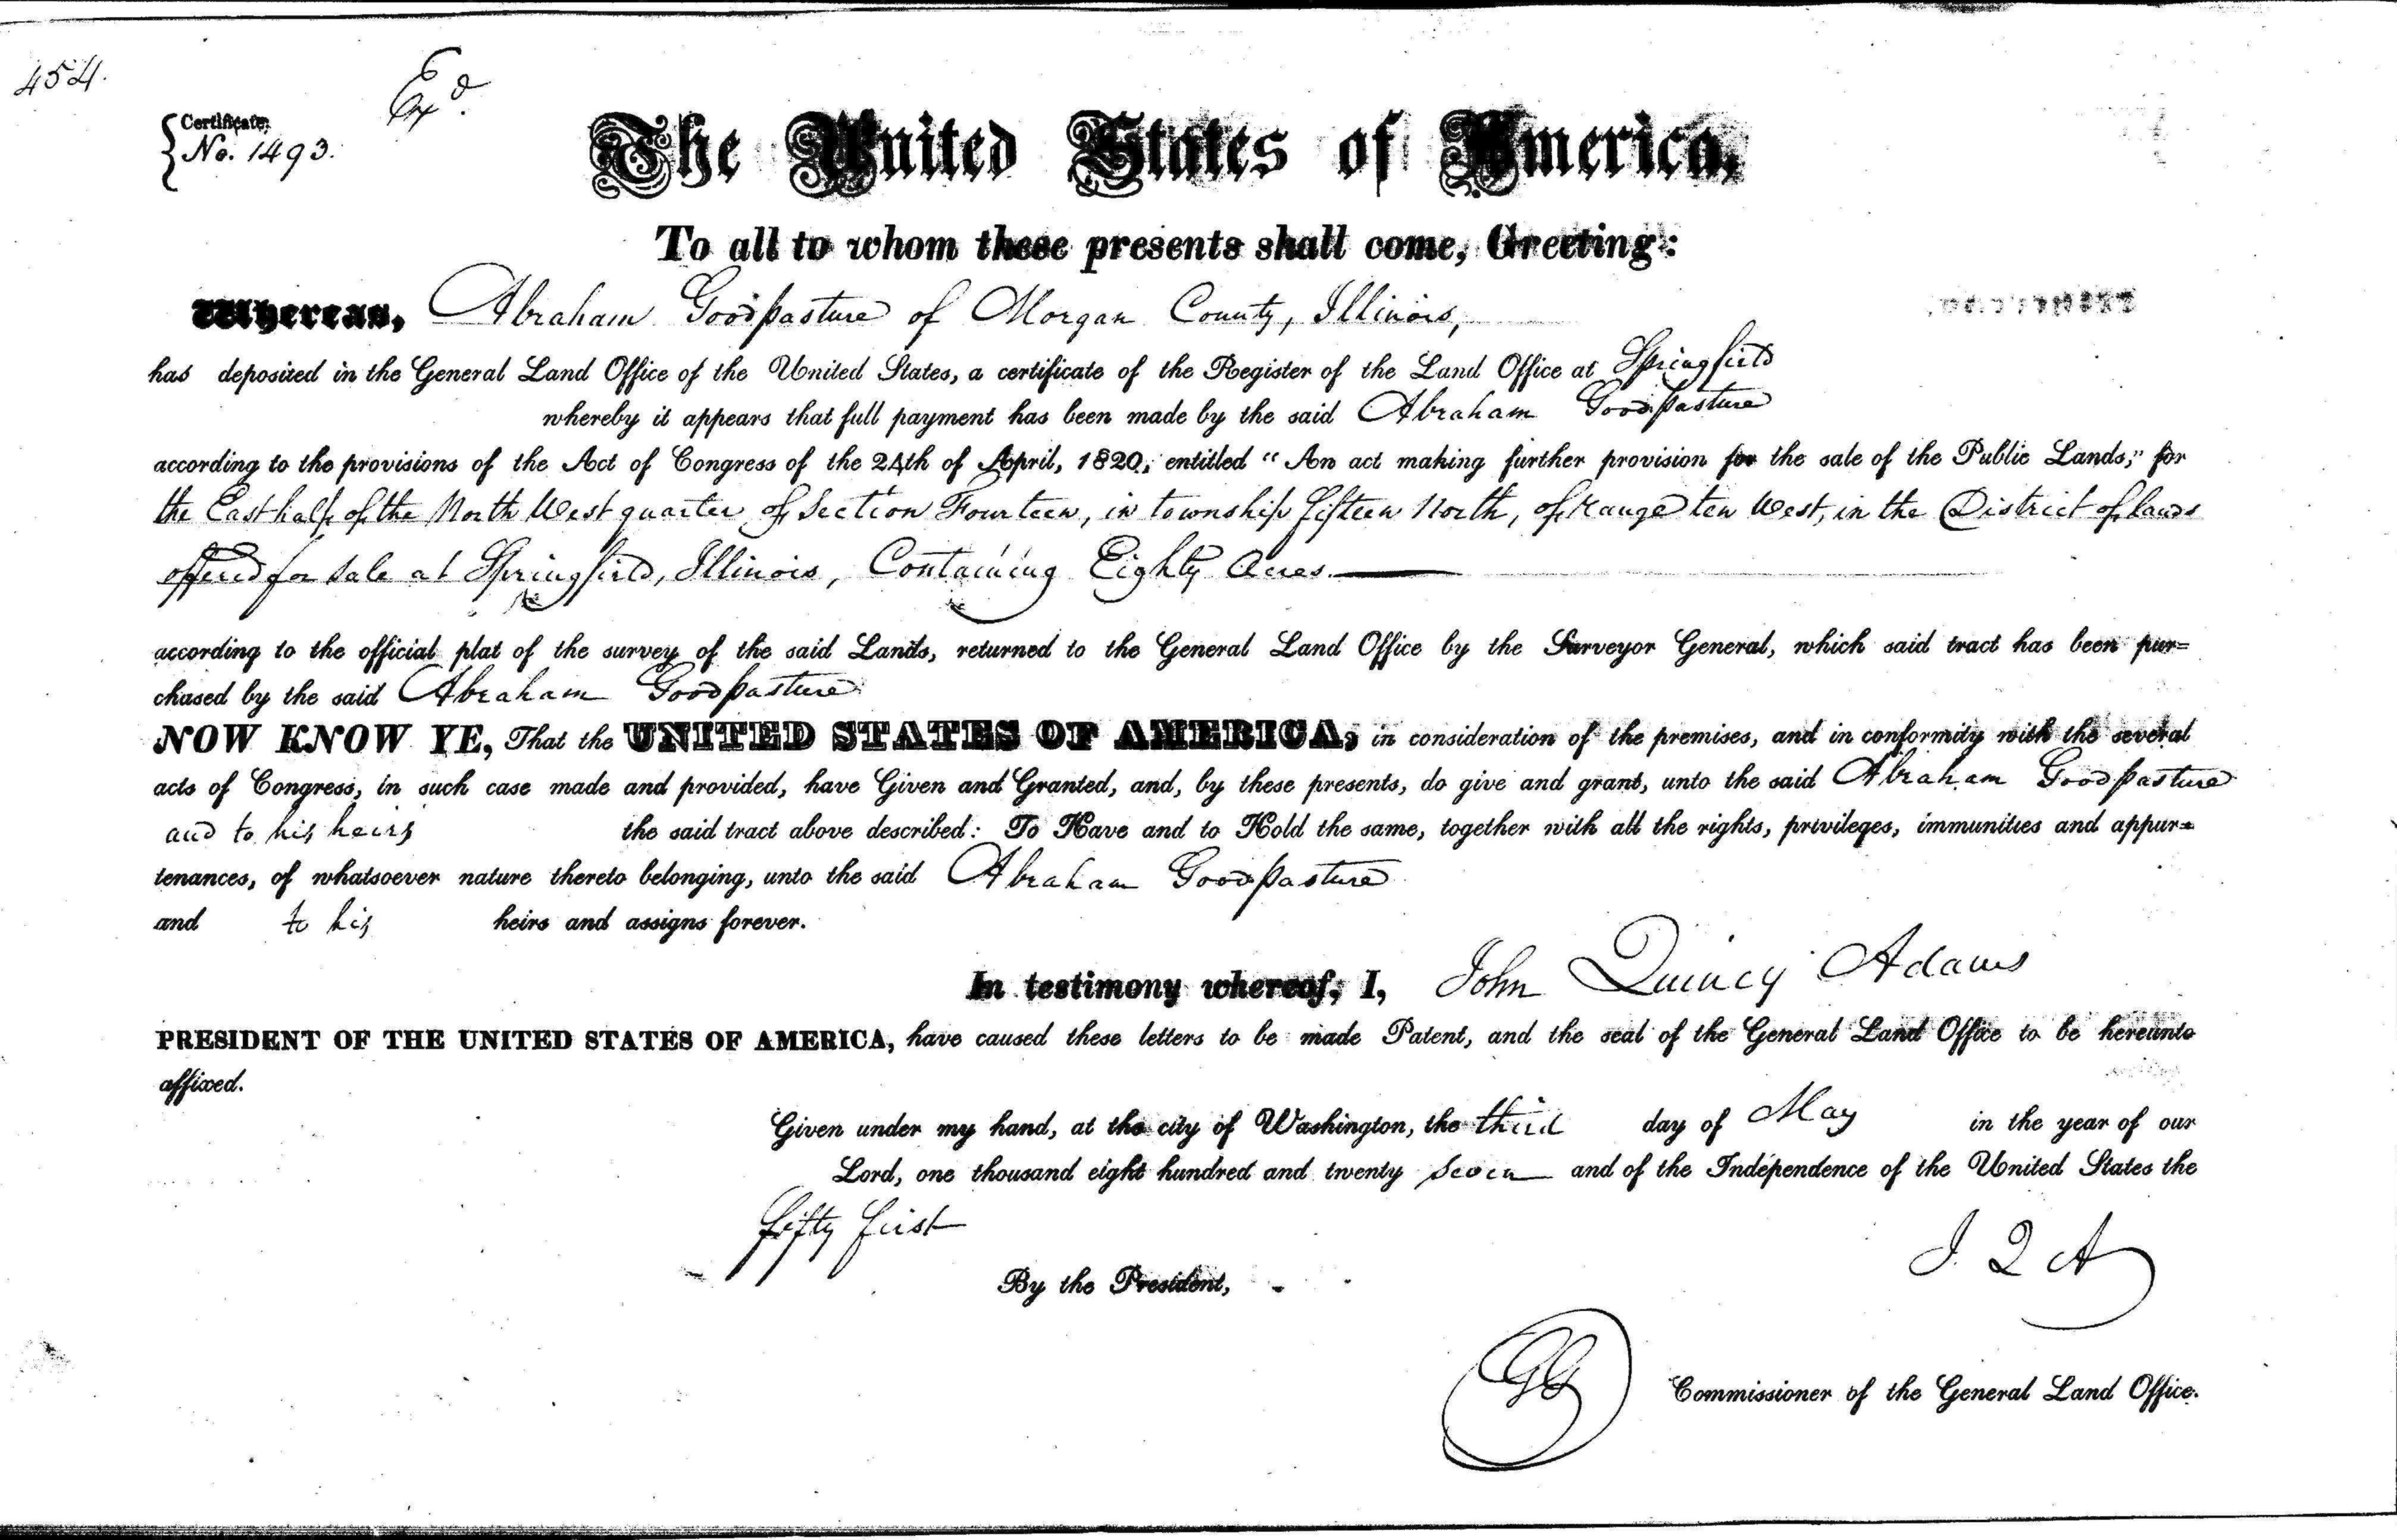 454.
Exd.
Certificate
No. 1493.
The United States of America,
To all to whom these presents shall come, Greeting:
Whereas, Abraham Goodpasture of Morgan County, Illinois,
has deposited in the General Land Office of the United States, a certificate of the Register of the Land Office at Springfield
whereby it appears that full payment has been made by the said Abraham Goodpasture
according to the provisions of the Act of Congress of the 24th of April, 1820, entitled "An act making further provision for the sale of the Public Lands," for
the East half of the North West quarter of Section Fourteen, in township fifteen North, of range ten West, in the District of lands
offered for sale at Springfield, Illinois, Containing Eighty Acres.
according to the official plat of the survey of the said Lands, returned to the General Land Office by the Surveyor General, which said tract has been pur=
chased by the said Abraham Goodpasture
NOW KNOW YE, That the UNITED STATES OF AMERICA, in consideration of the premises, and in conformity with the several
acts of Congress, in such case made and provided, have Given and Granted, and, by these presents, do give and grant, unto the said Abraham Goodpasture
and to his heirs the said tract above described: To Have and to Hold the same, together with all the rights, privileges, immunities and appur=
tenances, of whatsoever nature thereto belonging, unto the said Abraham Goodpasture
and to his heirs and assigns forever.
In testimony whereof, I, John Quincy Adams
PRESIDENT OF THE UNITED STATES OF AMERICA, have caused these letters to be made Patent, and the seal of the General Land Office to be hereunto
affixed.
Given under my hand, at the city of Washington, the third day of May in the year of our
Lord, one thousand eight hundred and twenty seven and of the Independence of the United States the
fifty first
J. Q A
By the President,
GG
Commissioner of the General Land Office.